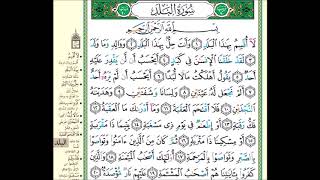 سُورَةُ الْبَلَدِ
بِسْمِ اللَّهِ الرَّحْمَٰنِ الرَّحِيمِ
لَا أُقْسِمُ بِهَٰذَا الْبَلَدِ ١ وَأَنتَ حِلٌّ بِهَٰذَا الْبَلَدِ ٢ وَوَالِدٍ وَمَا وَلَدَ
٣ لَقَدْ خَلَقْنَا الْإِنسَٰنَ فِي كَبَدٍ ٤ أَيَحْسَبُ أَن لَّن يَقْدِرَ عَلَيْهِ
أَحَدٌ ٥ يَقُولُ أَهْلَكْتُ مَالًا لُّبَدًا ٦ أَيَحْسَبُ أَن لَّمْ يَرَهُ أَحَدٌ
٧ أَلَمْ نَجْعَل لَّهُ عَيْنَيْنِ ٨ وَلِسَانًا وَشَفَتَيْنِ ٩ وَهَدَيْنَٰهُ
النَّجْدَيْنِ ١٠ فَلَا اقْتَحَمَ الْعَقَبَةَ ١١ وَمَا أَدْرَىٰكَ مَا الْعَقَبَةُ ١٢
فَكُّ رَقَبَةٍ ١٣ أَوْ إِطْعَٰمٌ فِي يَوْمٍ ذِي مَسْغَبَةٍ ١٤ يَتِيمًا ذَا مَقْرَبَةٍ
١٥ أَوْ مِسْكِينًا ذَا مَتْرَبَةٍ ١٦ ثُمَّ كَانَ مِنَ الَّذِينَ ءَامَنُوا وَتَوَاصَوْا
بِالصَّبْرِ وَتَوَاصَوْا بِالْمَرْحَمَةِ ١٧ أُولَٰئِكَ أَصْحَٰبُ الْمَيْمَنَةِ ١٨ وَالَّذِينَ
كَفَرُوا بِـَٔايَٰتِنَا هُمْ أَصْحَٰبُ الْمَشْـَٔمَةِ ١٩ عَلَيْهِمْ نَارٌ مُّؤْصَدَةٌ ٢٠
البلد